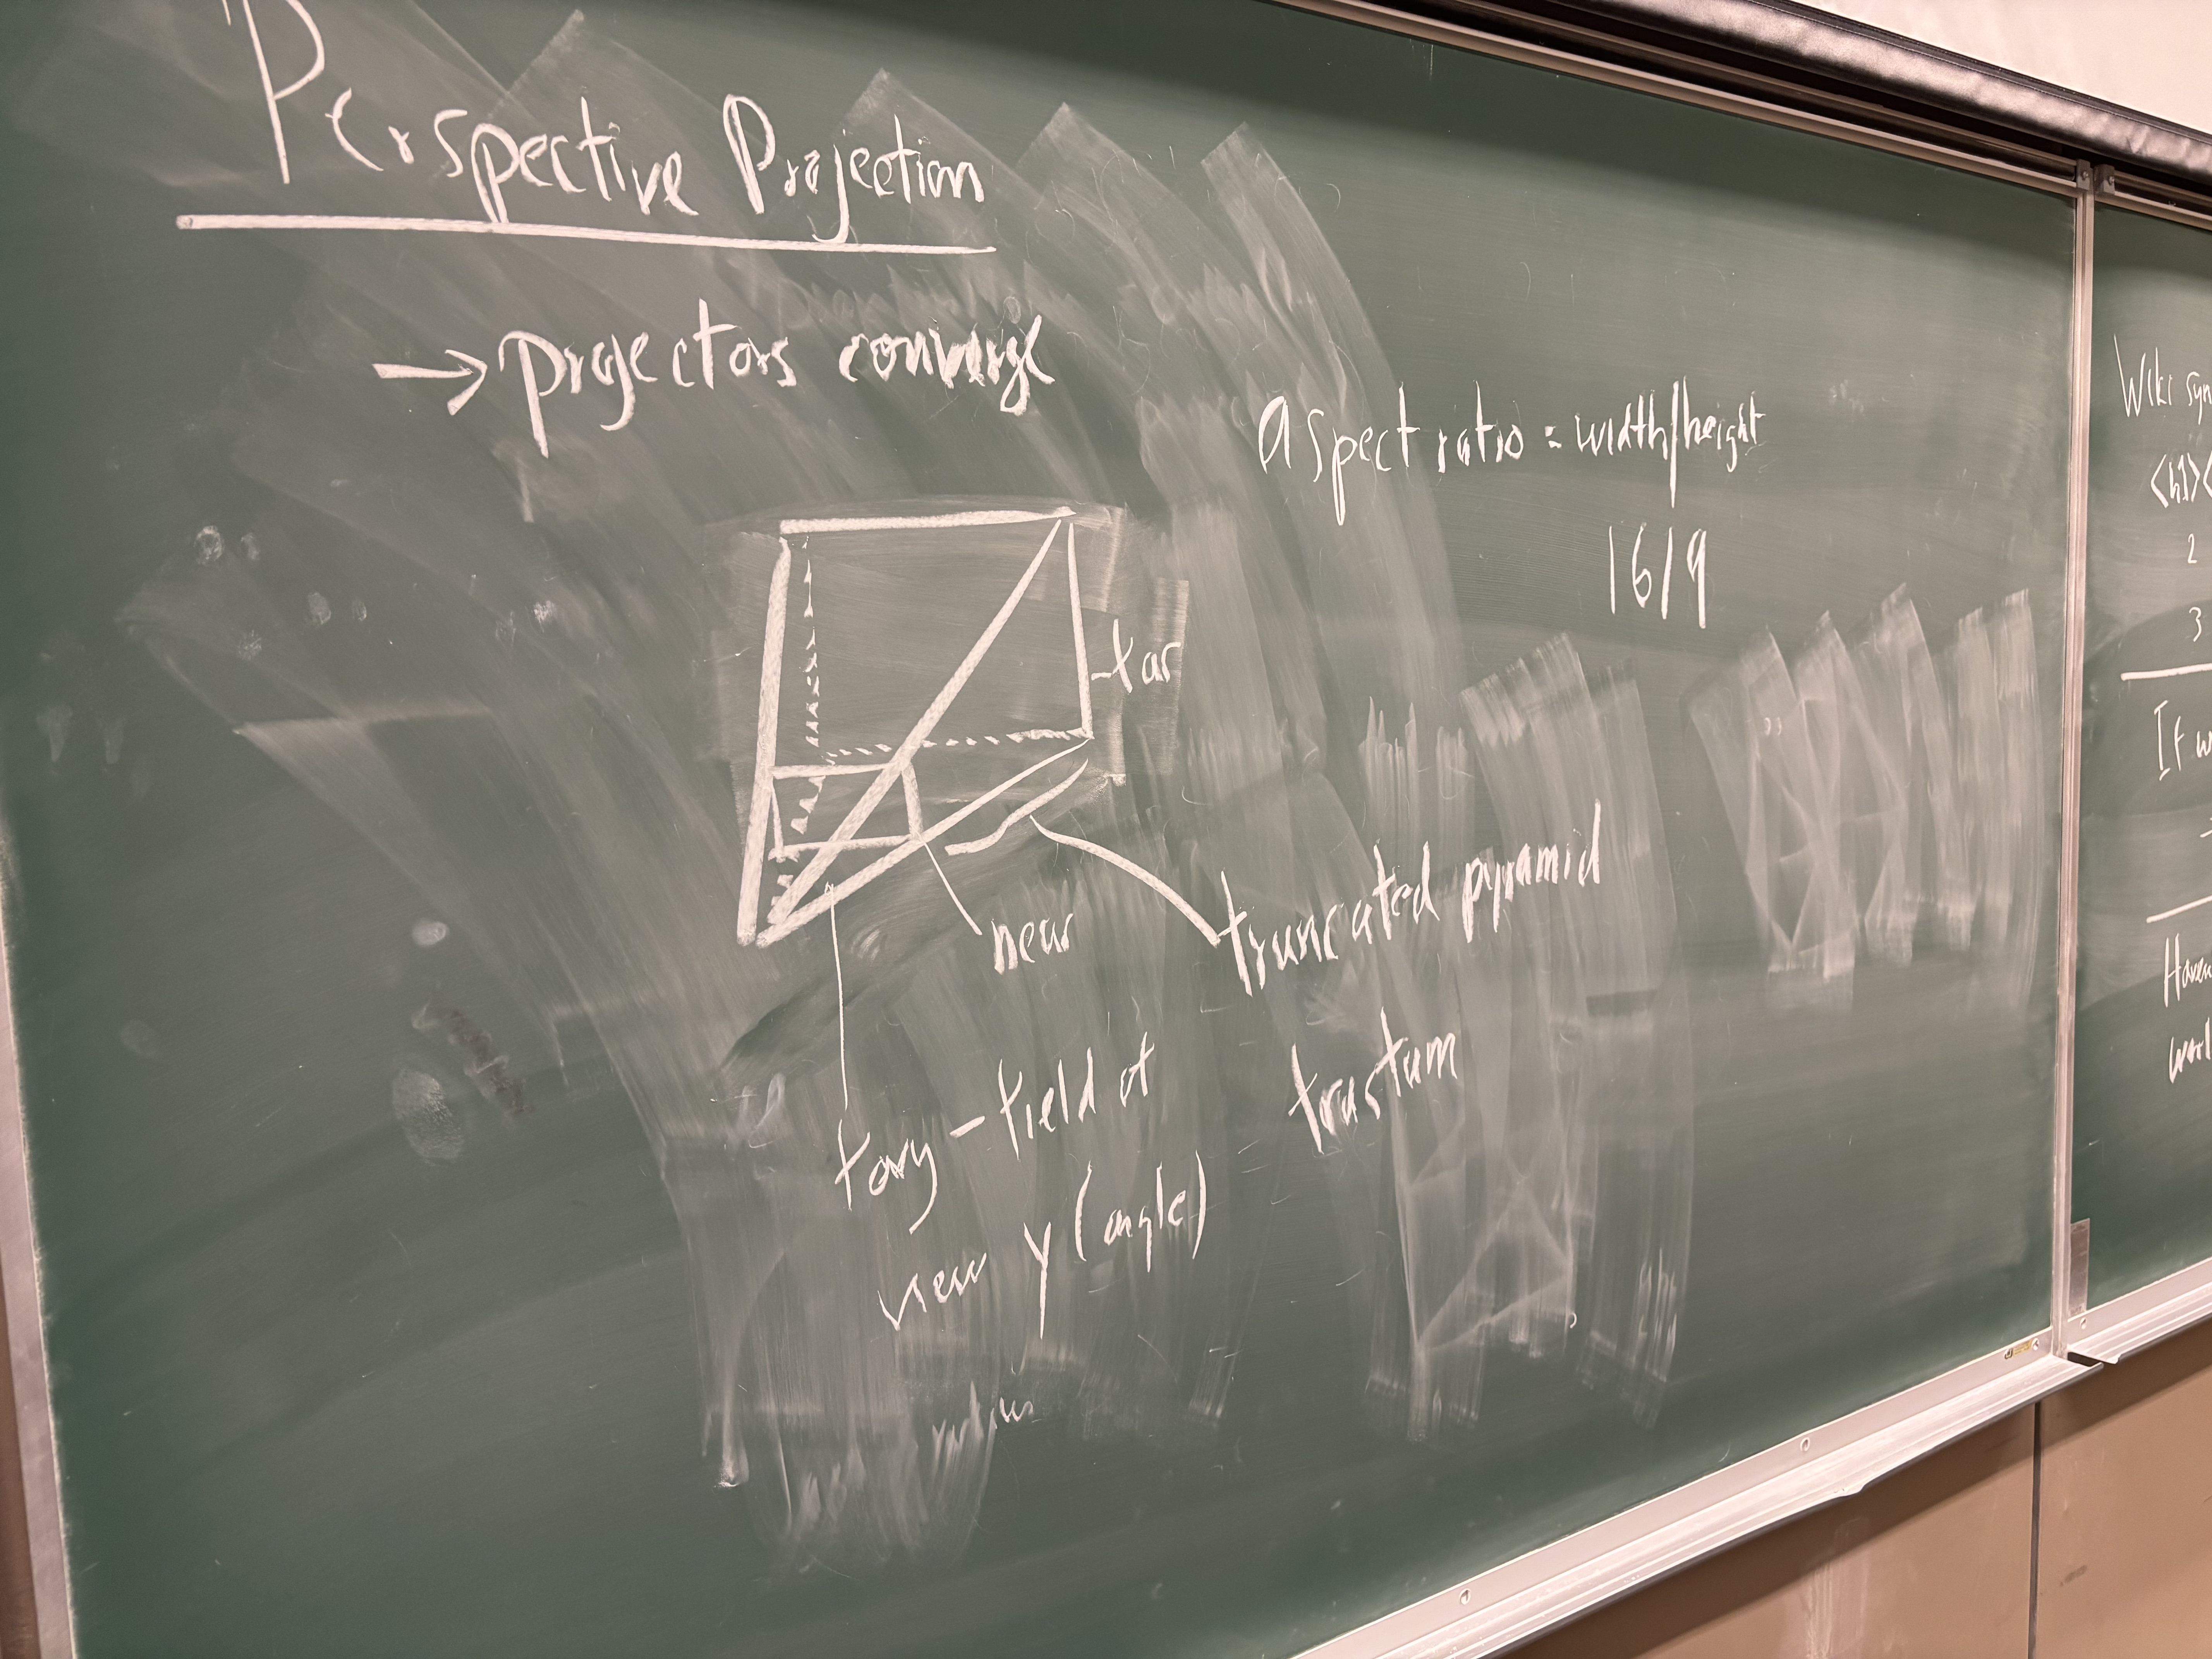 Perspective Projection
→ projectors converge
aspect ratio = width/height
16/9
far
near
truncated pyramid
frustum
fovy – field of
view y (angle)
Wiki syn
<h1><
2
3
If w
Haven
worl